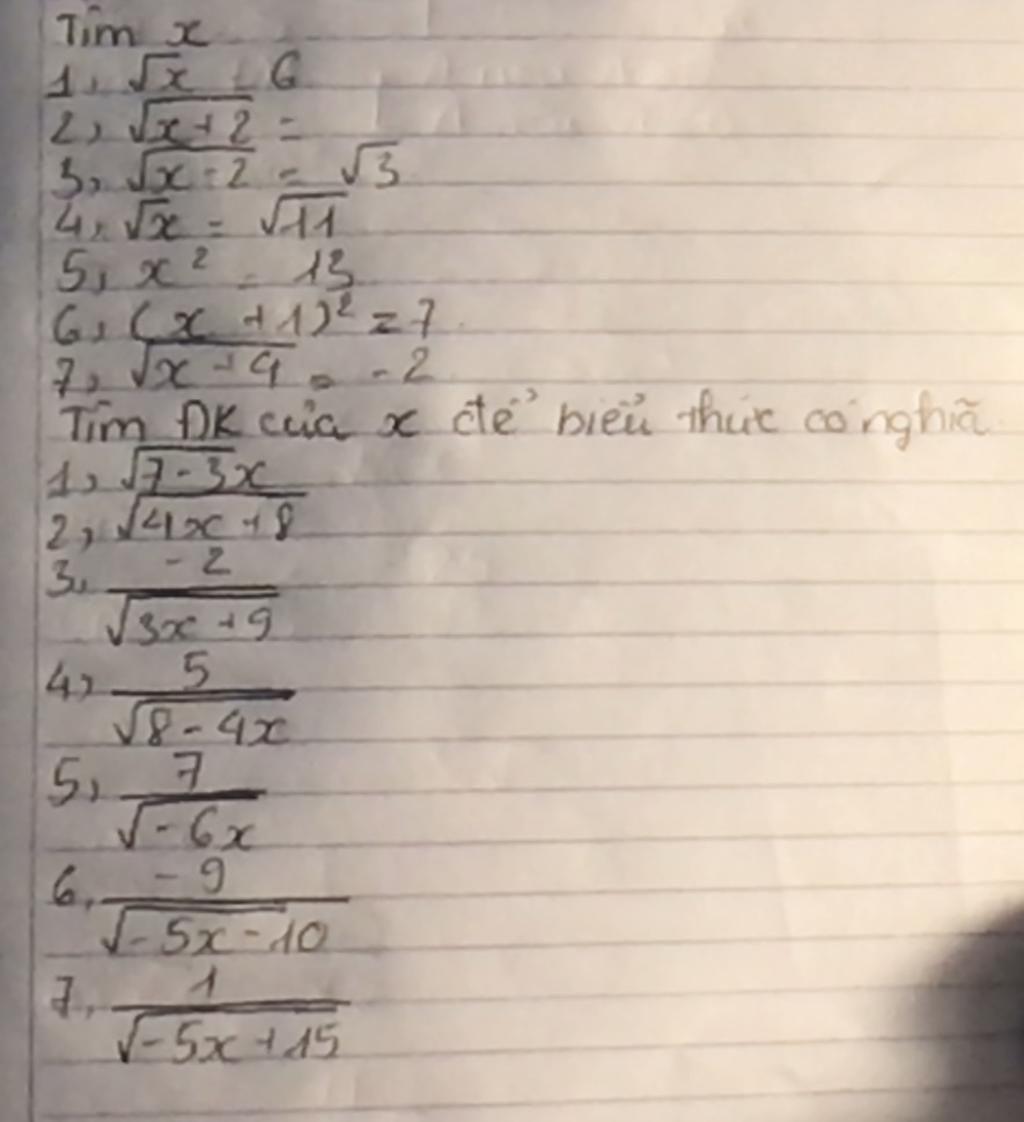 Tìm x
1, √x = 6
2, √x+2 =
3, √x-2 = √3
4, √x = √11
5, x² = 13
6, (x +1)² = 7
7, √x+4 = -2
Tìm ĐK của x để biểu thức có nghĩa
1, √7-3x
2, √4x+8
3, -2
√3x+9
4, 5
√8-4x
5, 7
√-6x
6, -9
√-5x-10
7, 1
√-5x+15